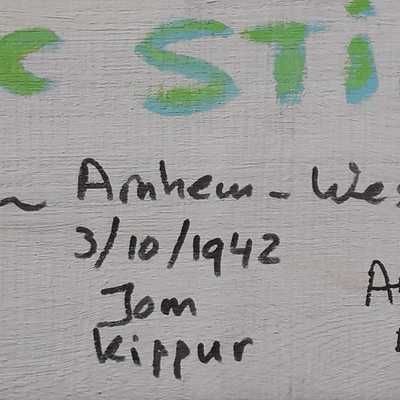 c sti
Arnhem - Wes
3/10/1942
Jom
Kippur
A